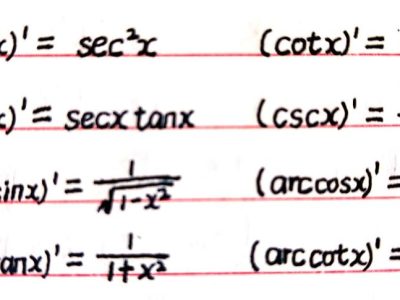 x)' = sec²x (cotx)' =
x)' = secx tanx (cscx)' = -
sinx)' = 1/√(1-x²) (arccosx)' =
anx)' = 1/(1+x²) (arccotx)' =